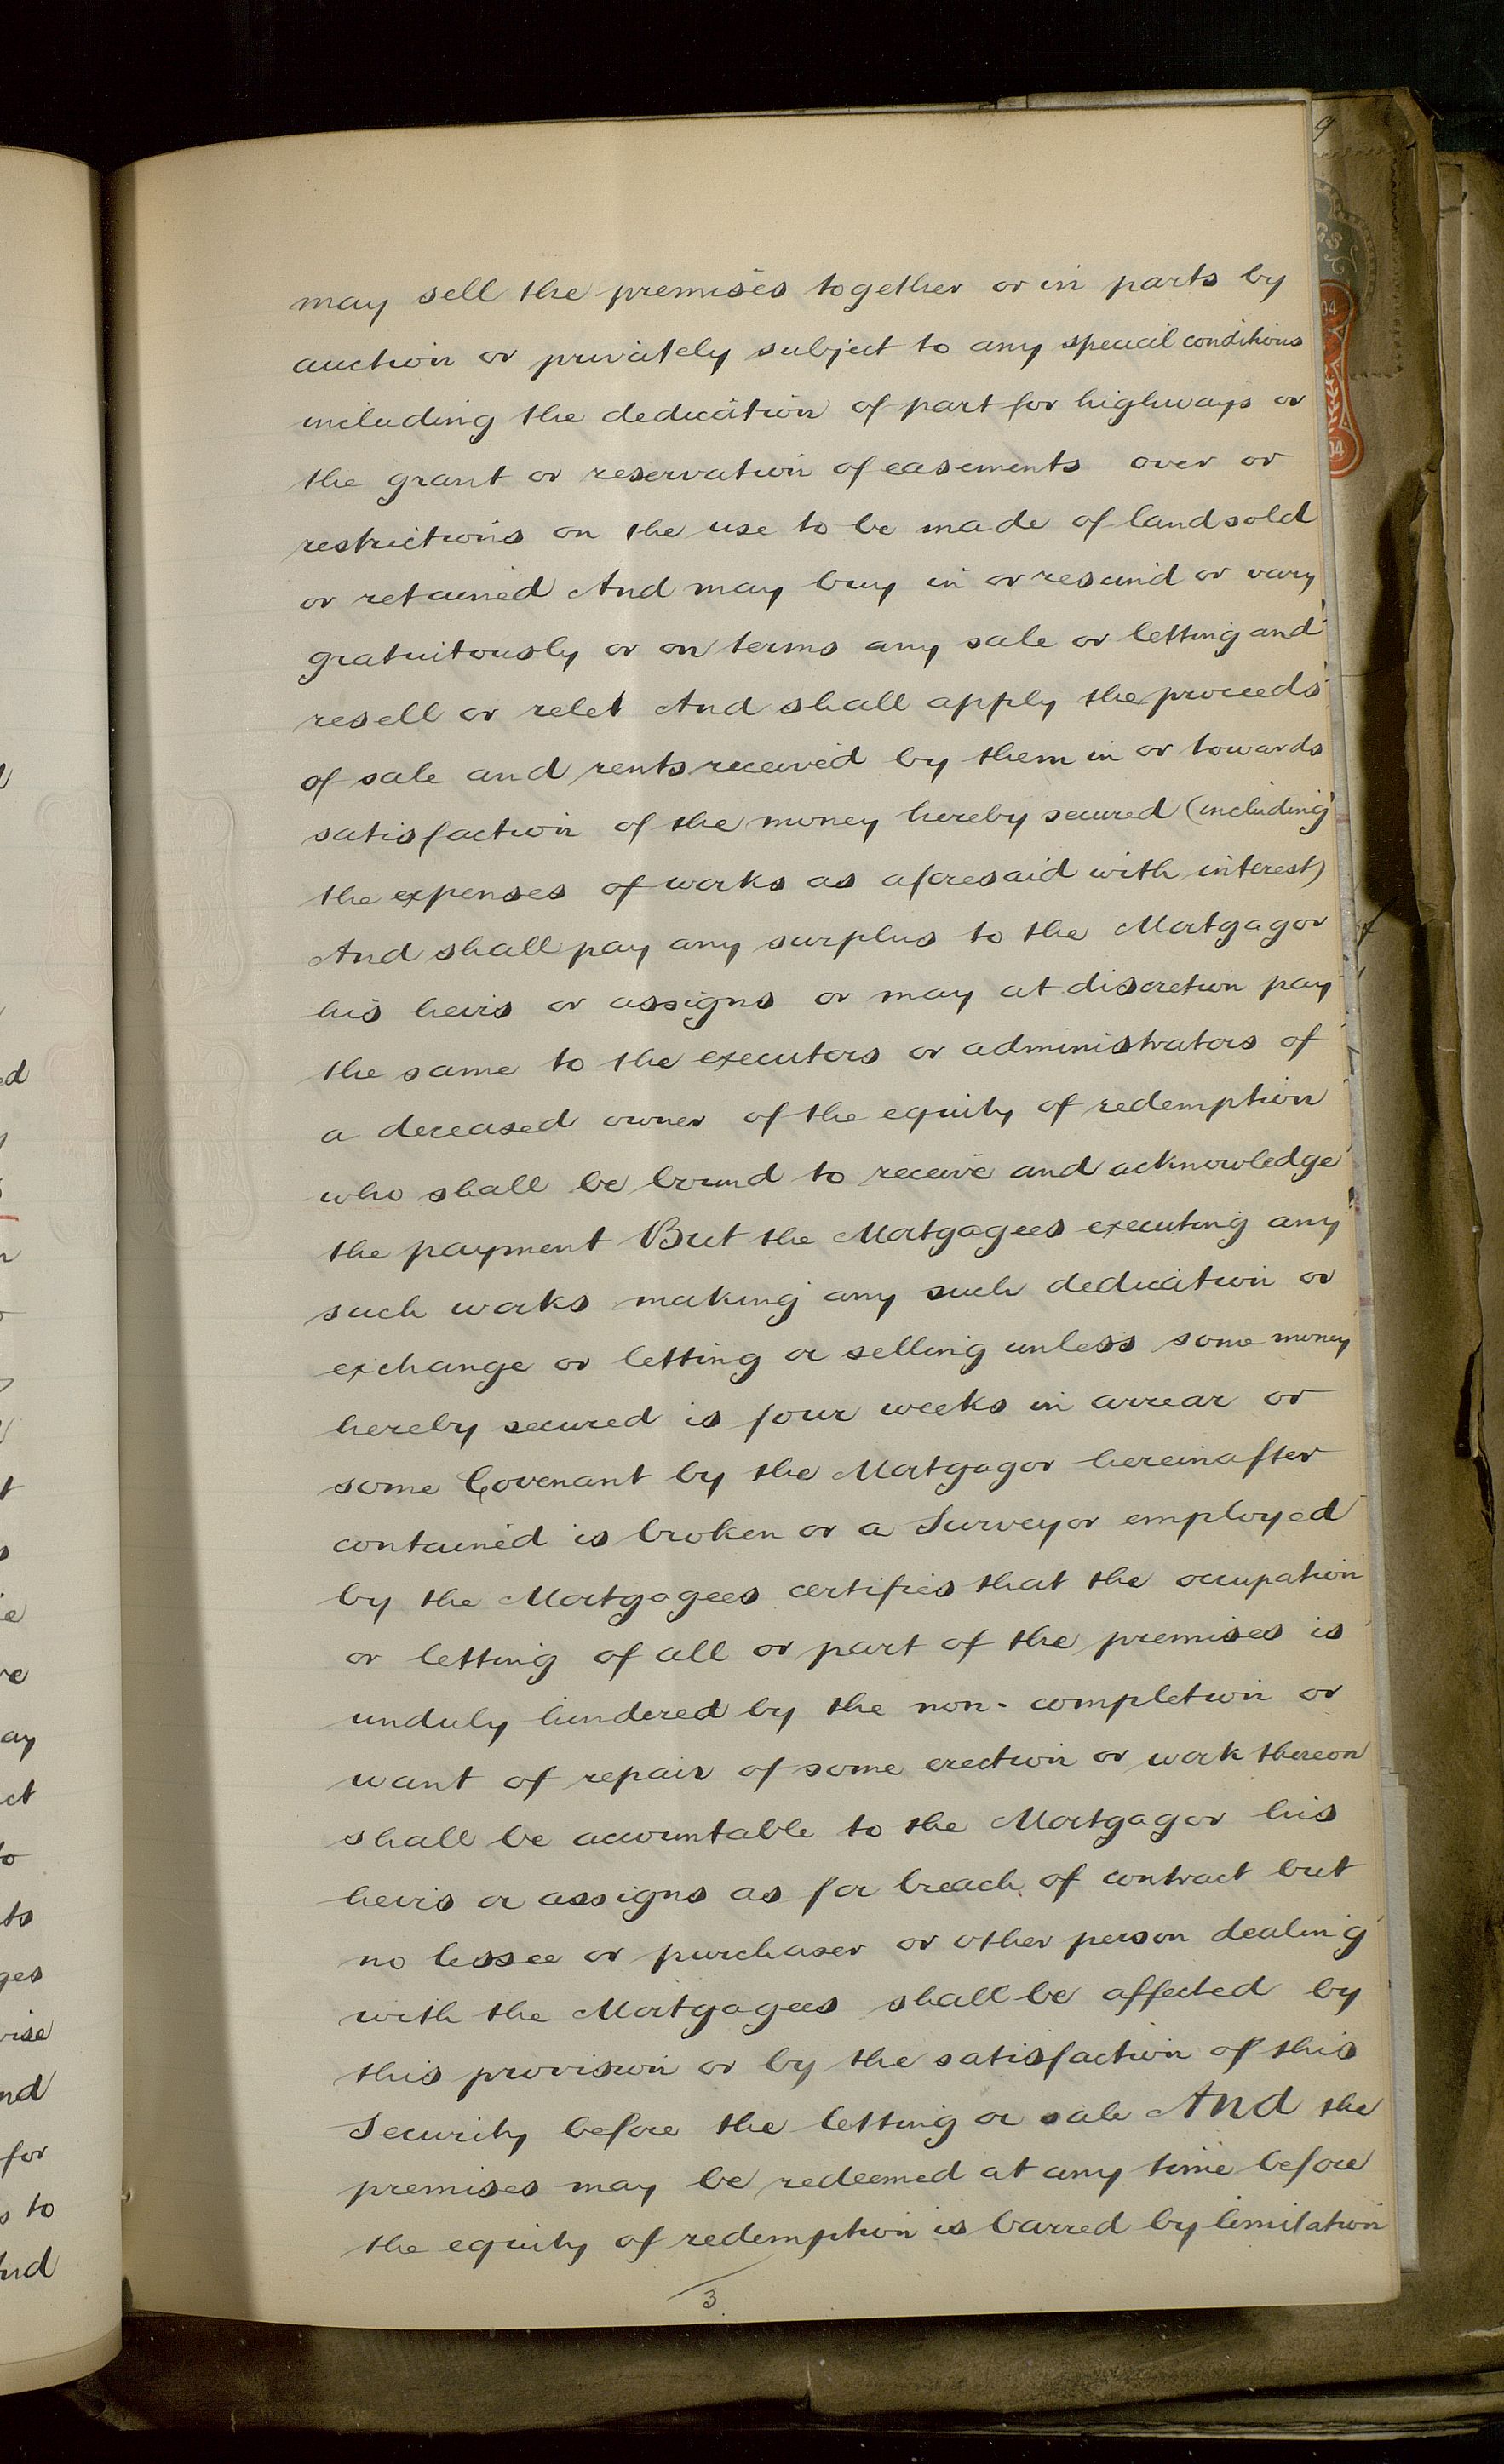 may sell the premises together or in parts by
auction or privately subject to any special conditions
including the dedication of part for highways or
the grant or reservation of easements over or
restrictions on the use to be made of land sold
or retained And may buy in or rescind or vary
gratuitously or on terms any sale or letting and
resell or relet And shall apply the proceeds
of sale and rents received by them in or towards
satisfaction of the money hereby secured (including
the expenses of works as aforesaid with interest)
And shall pay any surplus to the Mortgagor
his heirs or assigns or may at discretion pay
the same to the executors or administrators of
a deceased owner of the equity of redemption
who shall be bound to receive and acknowledge
the payment But the Mortgagees executing any
such works making any such dedication or
exchange or letting or selling unless some money
hereby secured is four weeks in arrear or
some Covenant by the Mortgagor hereinafter
contained is broken or a Surveyor employed
by the Mortgagees certifies that the occupation
or letting of all or part of the premises is
unduly hindered by the non-completion or
want of repair of some erection or work thereon
shall be accountable to the Mortgagor his
heirs or assigns as for breach of contract but
no lessee or purchaser or other person dealing
with the Mortgagees shall be affected by
this provision or by the satisfaction of this
Security before the letting or sale And the
premises may be redeemed at any time before
the equity of redemption is barred by limitation
3